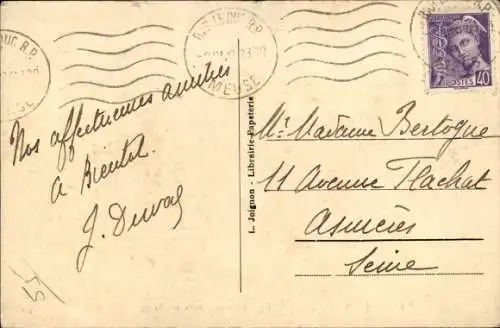 BAR-LE-DUC R.P.
MEUSE
DUC R.P.
USE
POSTES 40
Nos affectueuses amitiés
A Bientot.
J. Duval
55
L. Joignon - Librairie-Papeterie
Mr Madame Bertogne
11 Avenue Flachat
Asnières
Seine